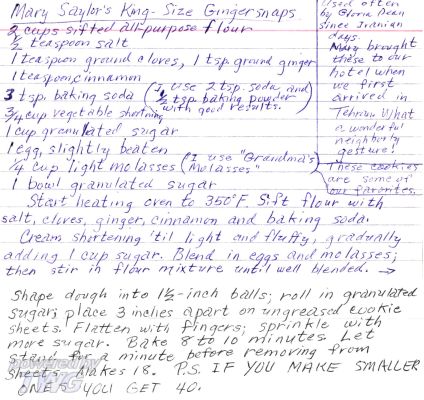 Mary Saylor's King-Size Gingersnaps
2 cups sifted all-purpose flour
1/2 teaspoon salt
1 teaspoon ground cloves, 1 tsp. ground ginger
1 teaspoon cinnamon
3 tsp. baking soda (I use 2 tsp. soda, and
1/2 tsp. baking powder
with good results.
3/4 cup vegetable shortning
1 cup granulated sugar
1 egg, slightly beaten
1/4 cup light molasses (I use "Grandma's
Molasses"
1 bowl granulated sugar
Start heating oven to 350°F. Sift flour with
salt, cloves, ginger, cinnamon and baking soda.
Cream shortening 'til light and fluffy, gradually
adding 1 cup sugar. Blend in eggs and molasses;
then stir in flour mixture until well blended. →
Used often
by Gloria Dean
since Iranian
days.
Mary brought
these to our
hotel when
we first
arrived in
Tehran. What
a wonderful
neighborly
gesture!
These cookies
are some of
our favorites.
Shape dough into 1 1/2-inch balls; roll in granulated
sugar; place 3 inches apart on ungreased cookie
sheets. Flatten with fingers; sprinkle with
more sugar. Bake 8 to 10 minutes. Let
stand for a minute before removing from
sheets. Makes 18. P.S. IF YOU MAKE SMALLER
ONES YOU GET 40.
powered by
TWG